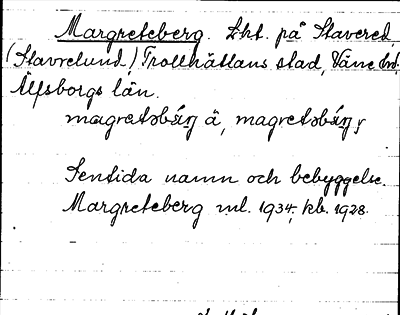 Margreteberg. Lht. på Stavered,
(Stavrelund,) Trollhättans stad, Väne hd.
Älfsborgs län.
magretəbäŋ ä, magretəbäŋ y
Sentida namn och bebyggelse.
Margreteberg ml. 1934, kb. 1928.